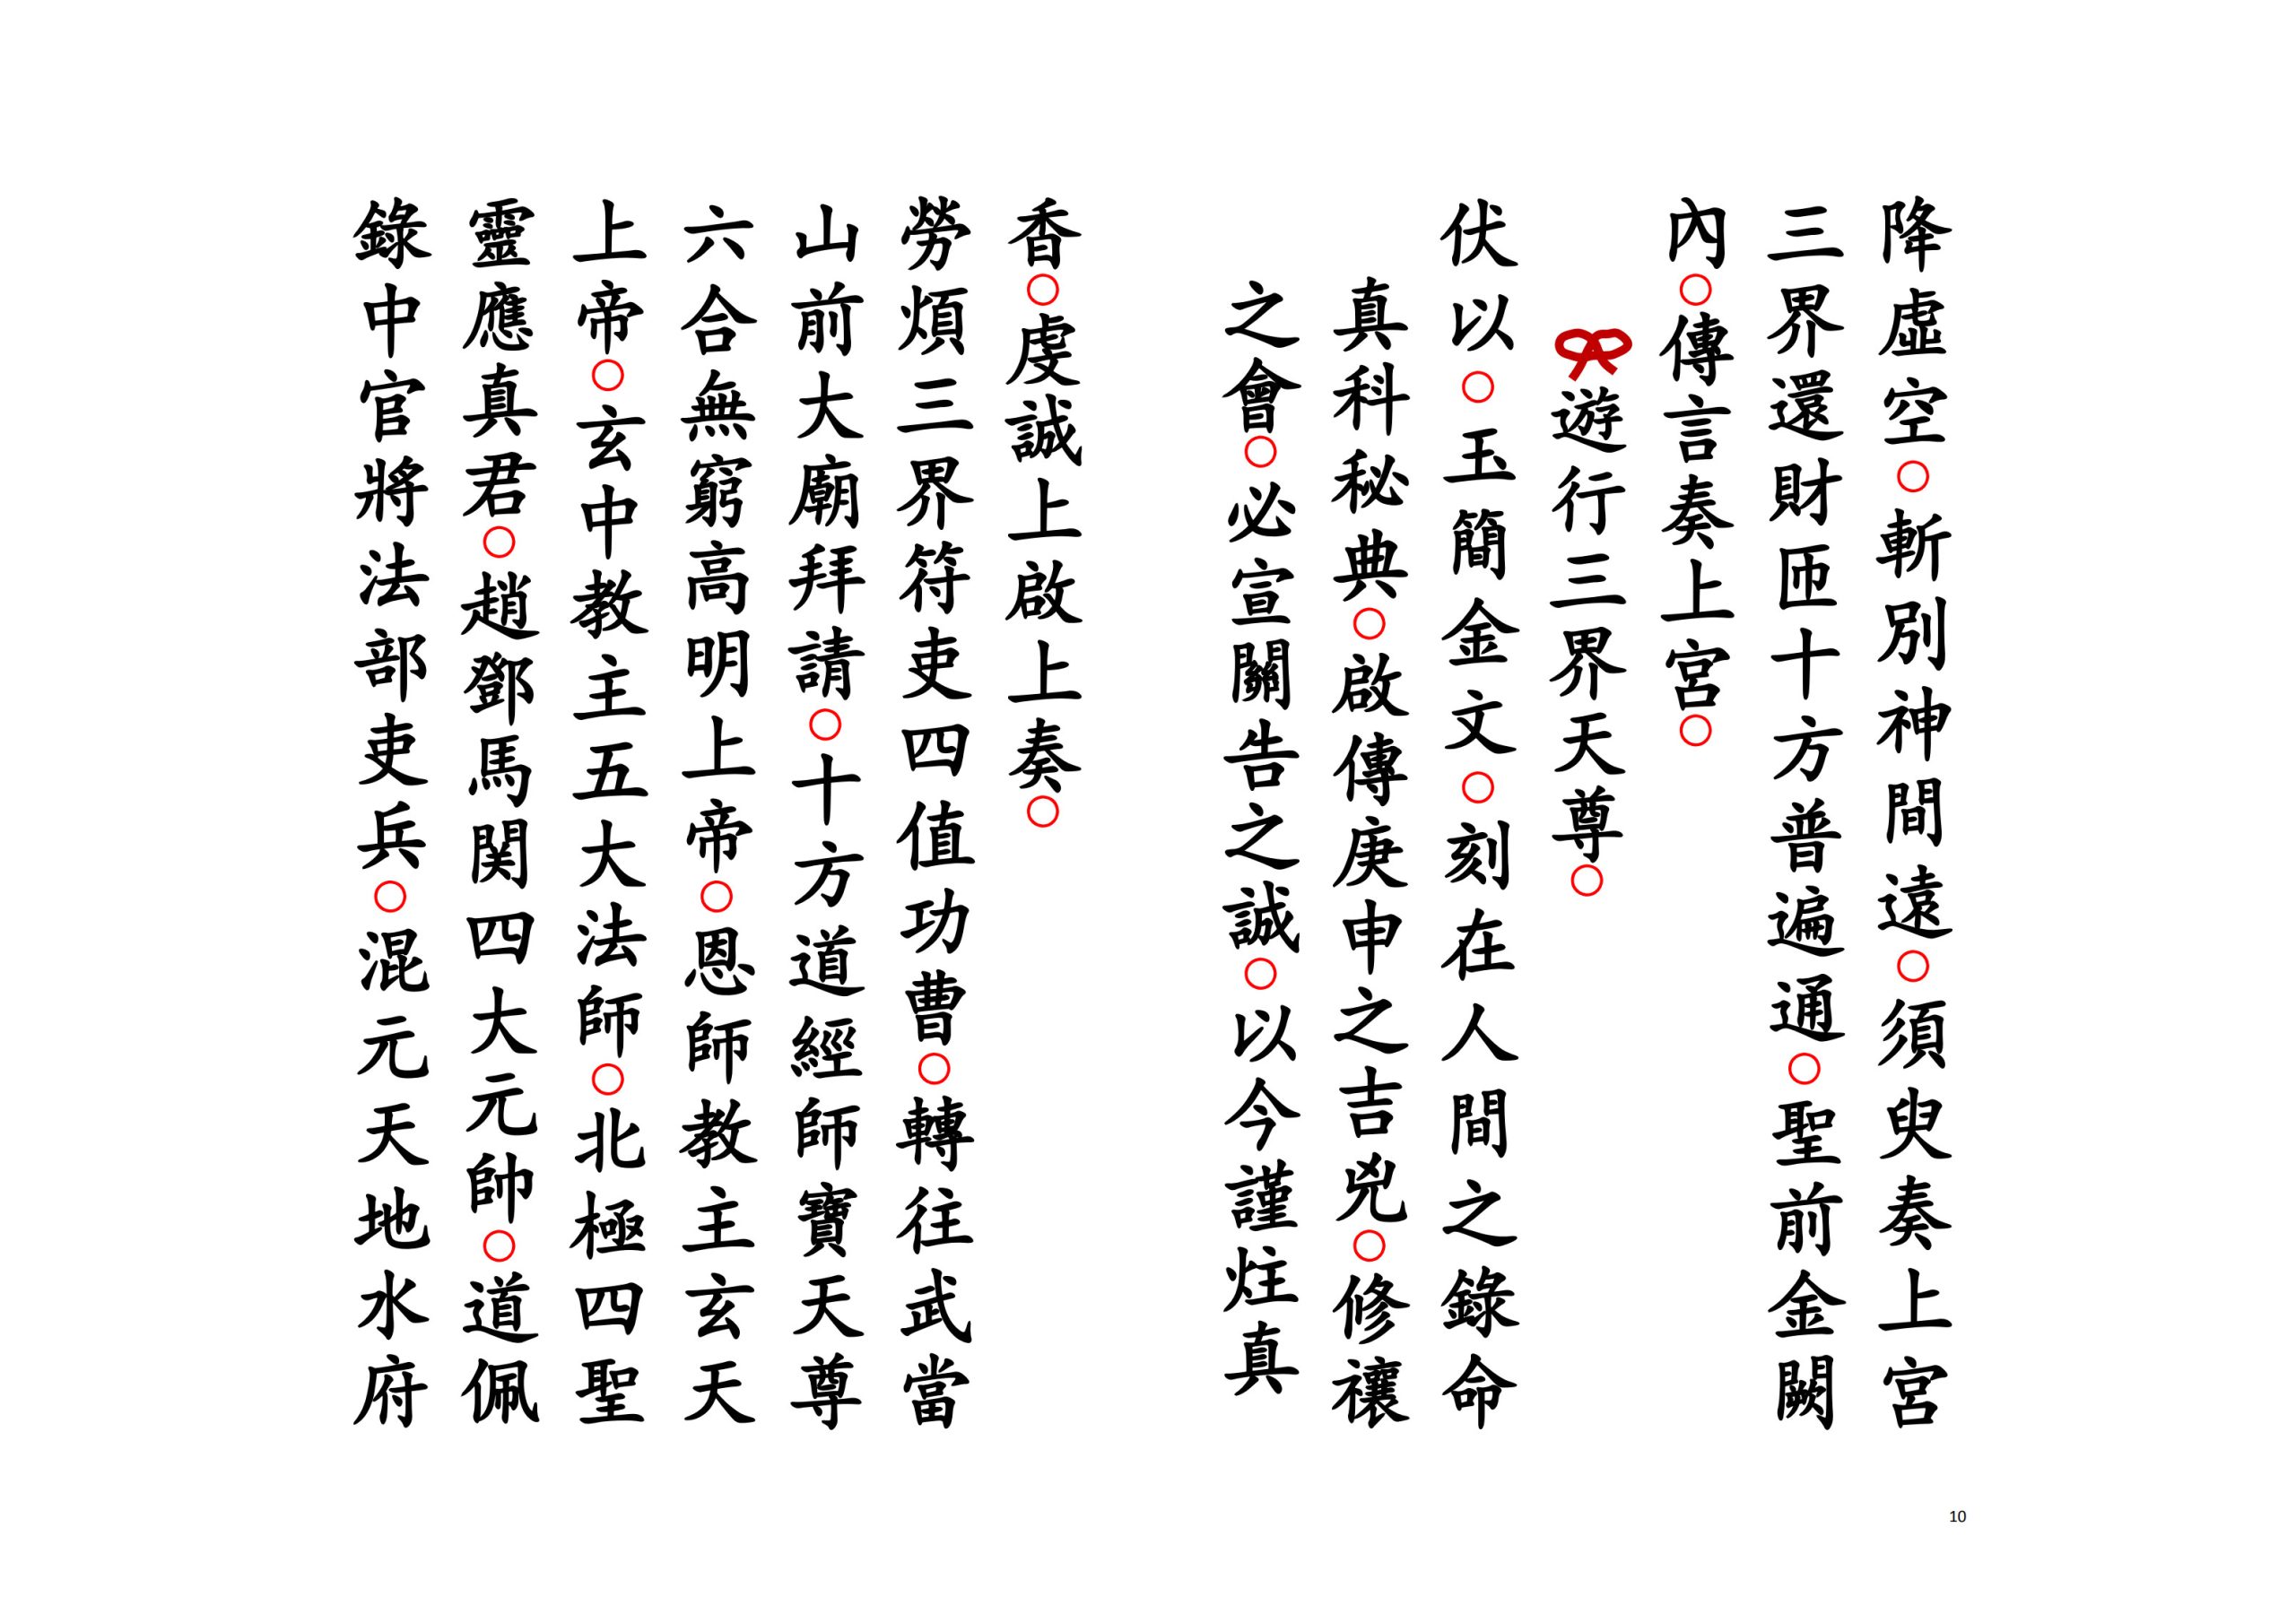 降虛空○斬別神間遠○須臾奏上宮
三界還財匝十方普遍通○聖前金闕
內○傳言奏上宮○
遊行三界天尊○
伏以○玉簡金文○刻在人間之錄命
真科秘典○啟傳庚申之吉兇○修禳
之會○必宣關告之誠○以今謹炷真
香○虔誠上啟上奏○
勞煩三界符吏四值功曹○轉往武當
山前大廟拜請○十方道經師寶天尊
六合無窮高明上帝○恩師教主玄天
上帝○玄中教主五大法師○北極四聖
靈應真君○趙鄧馬関四大元帥○道佩
錄中官將法部吏兵○混元天地水府
10